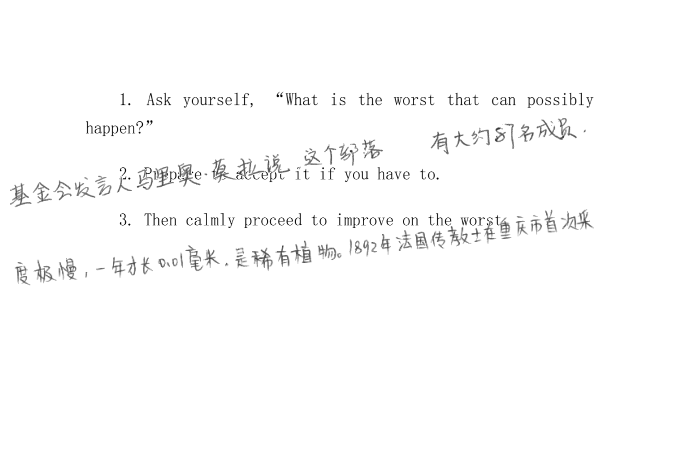 1. Ask yourself, “What is the worst that can possibly
happen?”
有大约87名成员.
基金会发言人马里奥·莫拉说 这个部落
2. Prepare to accept it if you have to.
3. Then calmly proceed to improve on the worst.
度极慢,一年才长0.01毫米,是稀有植物。1892年法国传教士在重庆市首次采